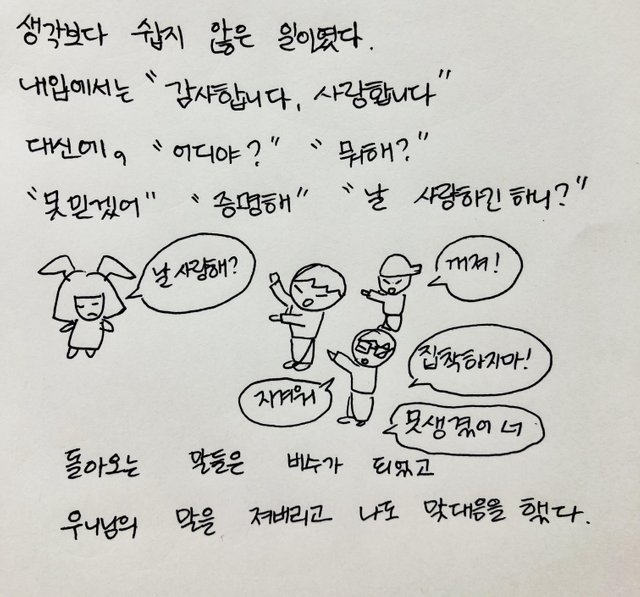 생각보다 쉽지 않은 일이였다.
내입에서는 "감사합니다, 사랑합니다"
대신에, "어디야?" "뭐해?"
"못믿겠어" "증명해" "날 사랑하긴 하니?"
날 사랑해?
꺼져!
집착하지마!
지겨워
못생겼어 너
돌아오는 말들은 비수가 되었고
우니님의 말을 져버리고 나도 맞대응을 했다.